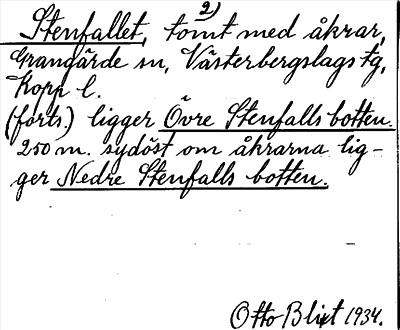 2)
Stenfallet, tomt med åkrar,
Grangärde sn, Västerbergslags tg,
Kopp l.
(forts.) ligger Övre Stenfallsbotten.
250 m. sydöst om åkrarna lig-
ger Nedre Stenfalls botten.
Otto Blixt 1934.